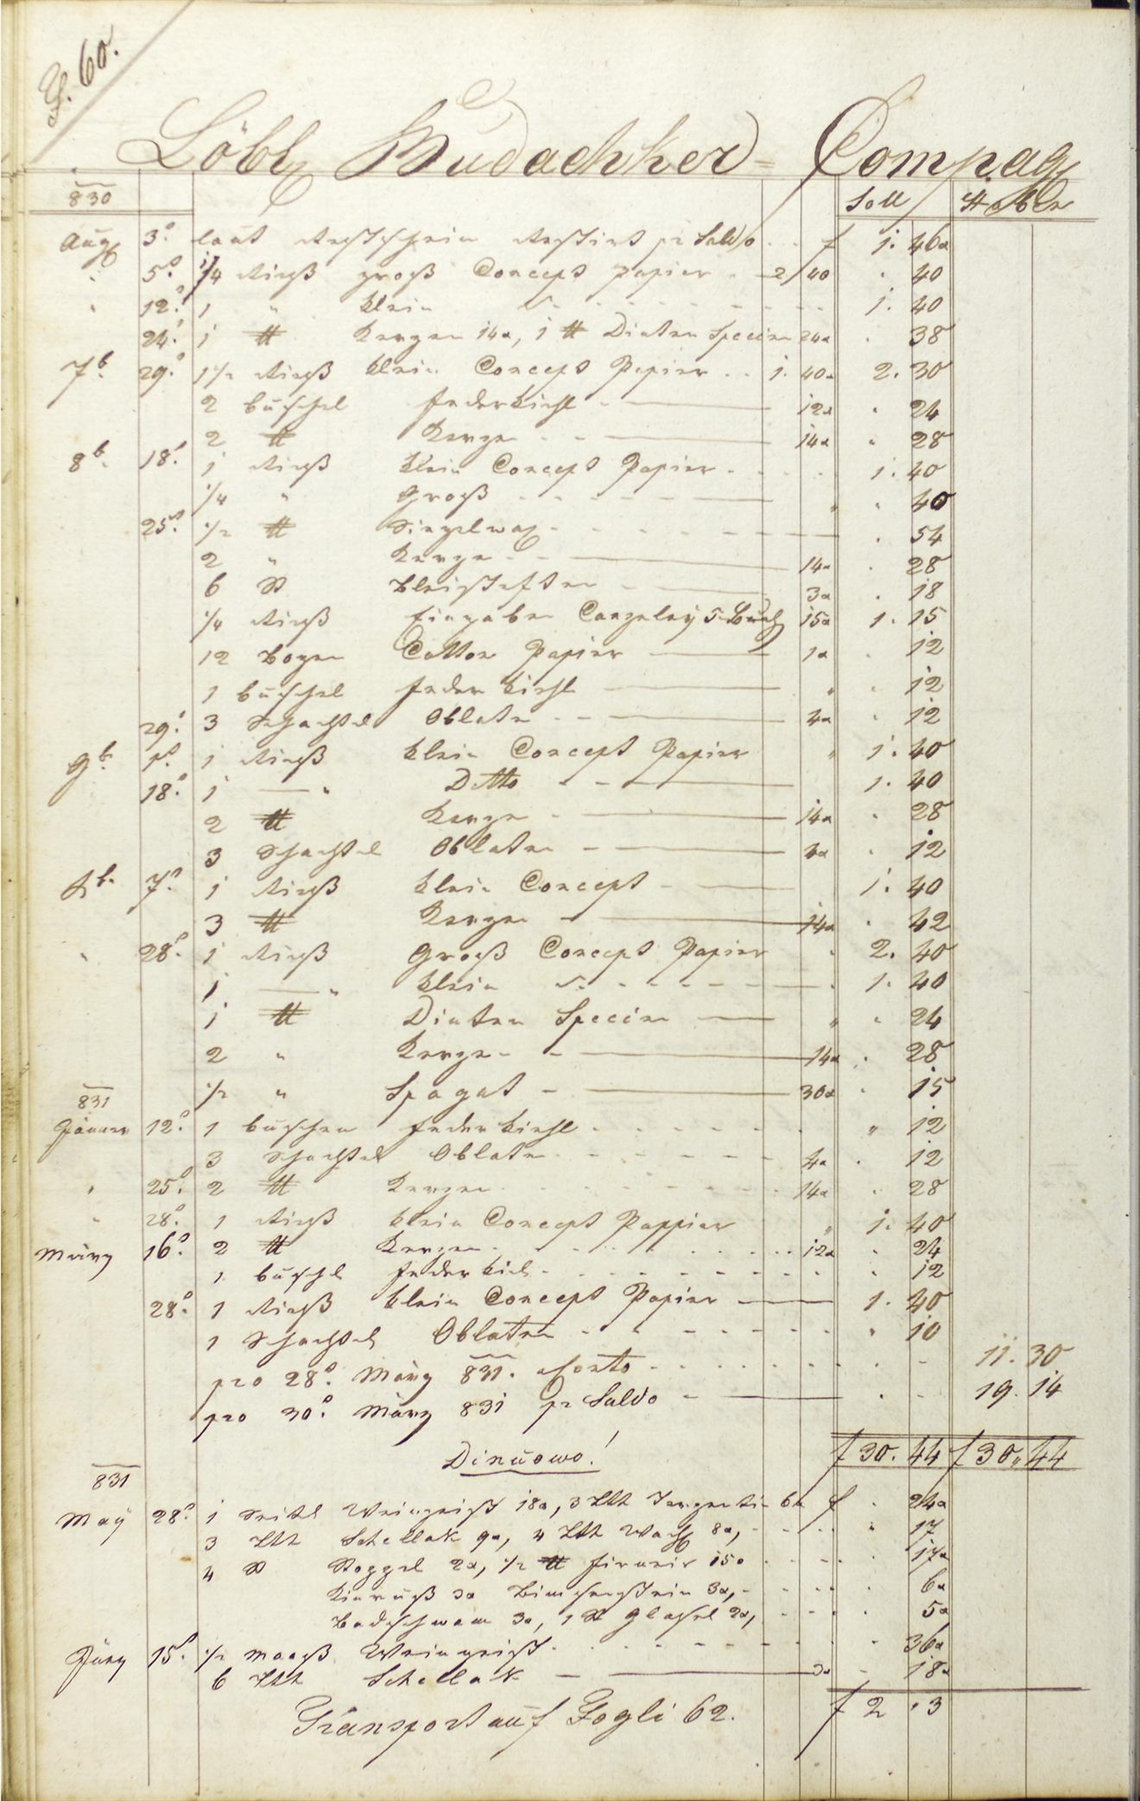 F. 60.
Löbl Budachker Compag
830 Soll Haben
Aug 3. laut Restschein Restirt pr Saldo f 1. 46x
5. 1/4 Rieß groß Concept papier 2/40 40
12. 1 " klein 1. 40
24. 1 ℔ Kerzen 14x, 1 ℔ Dinten Specien 24x 38
7b. 29. 1 1/2 Rieß klein Concept Papier 1. 40x 2. 30
2 Buschel Federkiehl 12x 24
2 ℔ Kerzen 14x 28
8b. 18. 1 Rieß klein Concept Papier 1. 40
1/4 " Groß " 40
25. 1/2 ℔ Siegelwax 54
2 " Kerze 14x 28
6 St Bleistiften 3x 18
1/4 Rieß Eingaben Canzeley 5 Buch 15x 1. 15
12 Bogen Cotton Papier 1x 12
1 Buschel Feder kiehl " 12
29. 3 Schachtel Oblate 4x 12
9b. 1. 1 Rieß klein Concept Papier " 1. 40
18. 1 — " Ditto 1. 40
2 ℔ Kerze 14x 28
3 Schachtel Oblaten 4x 12
Xb. 7. 1 Rieß klein Concept 1. 40
3 ℔ Kerzen 14x 42
28. 1 Rieß Groß Concept Papier 2. 40
1 — " klein 1. 40
1 ℔ Dinten Specien " 24
2 " Kerze 14x 28
1/2 " Spagat 30x 15
831
Jänner 12. 1 Buschen Federkiehl " 12
3 Schachtel Oblate 4x 12
25. 2 ℔ Kerzen 14x 28
28. 1 Rieß klein Concept Pappier " 1. 40
März 16. 2 ℔ Kerzen 12x 24
1 Buschl Federkiel 12
28. 1 Rieß klein Concept Papier 1. 40
1 Schachtel Oblaten 10
pro 28. März 831. aConto 11. 30
pro 30. März 831 pr Saldo 19. 14
f 30. 44 f 30. 44
Dinuowo!
831
May 28. 1 Seitel Weingeist 18x, 3 Lth Terpentin 6x f 24x
3 Lth Schellak 9x, 4 Lth Wachs 8x, 17
4 St Stoppel 2x, 1/2 ℔ Firneis 15x 17x
Kinruß 3x Bimsenstein 3x, 6x
Badschwam 3x, 1 St Glasel 2x, 5x
Juny 15. 1/2 Maaß Weingeist 36x
6 Lth Schellak 3x 18x
Transport auf Fogli 62. f 2 . 3